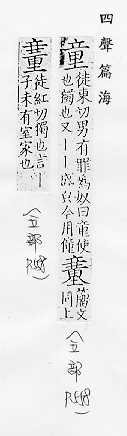 四聲篇海
童
徒東切男有罪爲奴曰童使
也獨也又丨丨盛皃今用僮
籀文
同上
(立部
徒紅切獨也言丨
子未有室家也
(立部